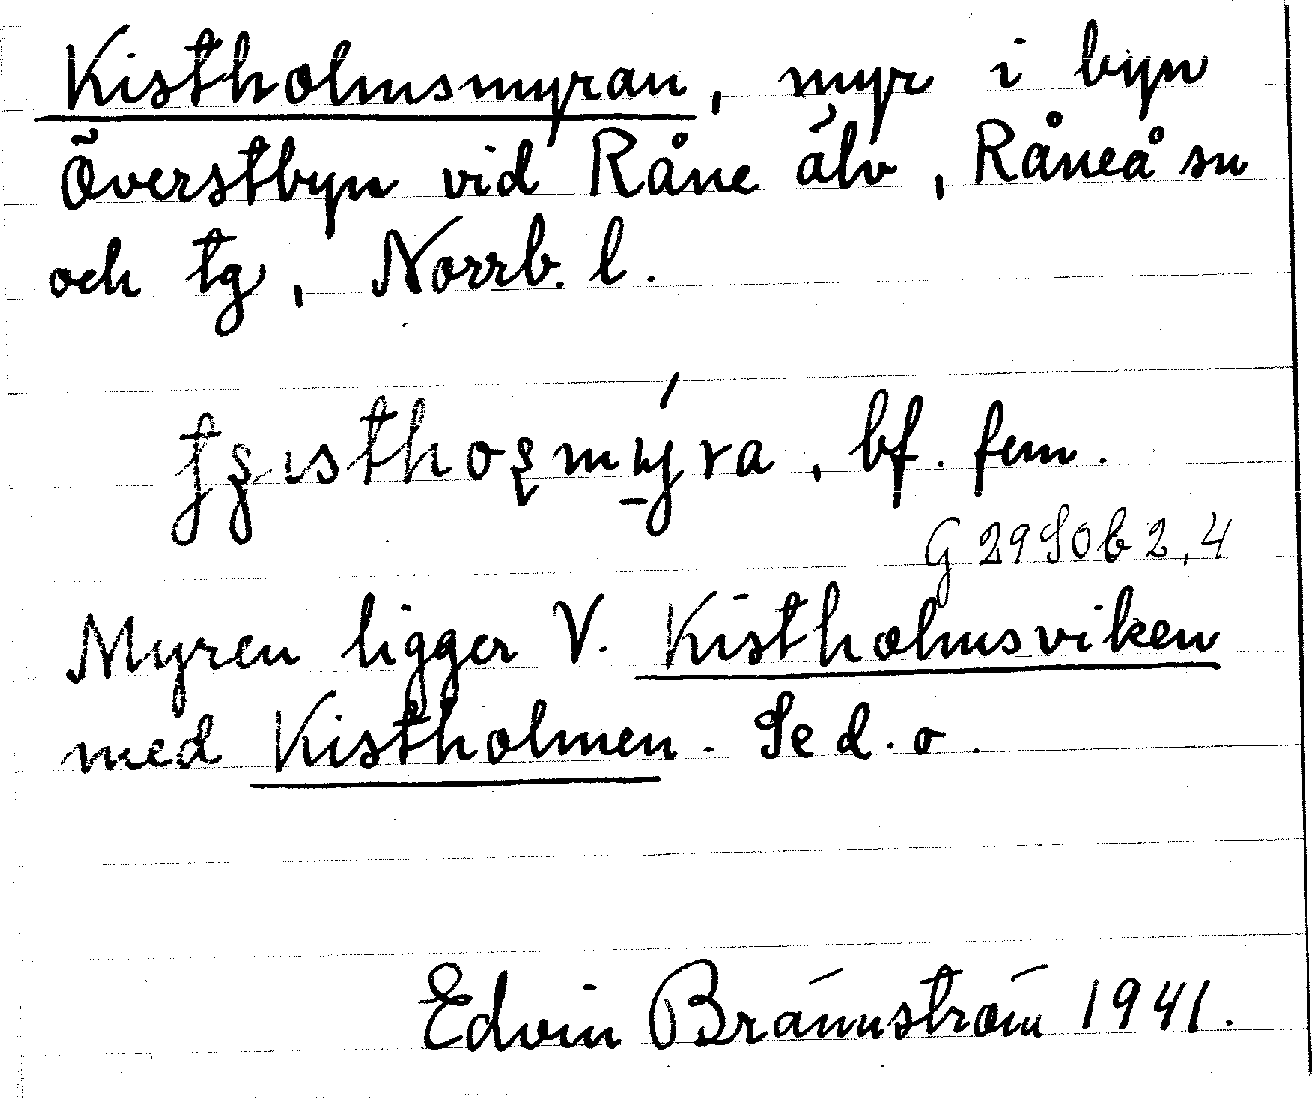 Kistholmsmyran, myr i byn
Överstbyn vid Råne älv, Råneå sn
och tg, Norrb. l.
bf. fem.
G 29 S0b 2,4
Myren ligger V. Kistholmsviken
med Kistholmen. Se d. o.
Edvin Brännström 1941.